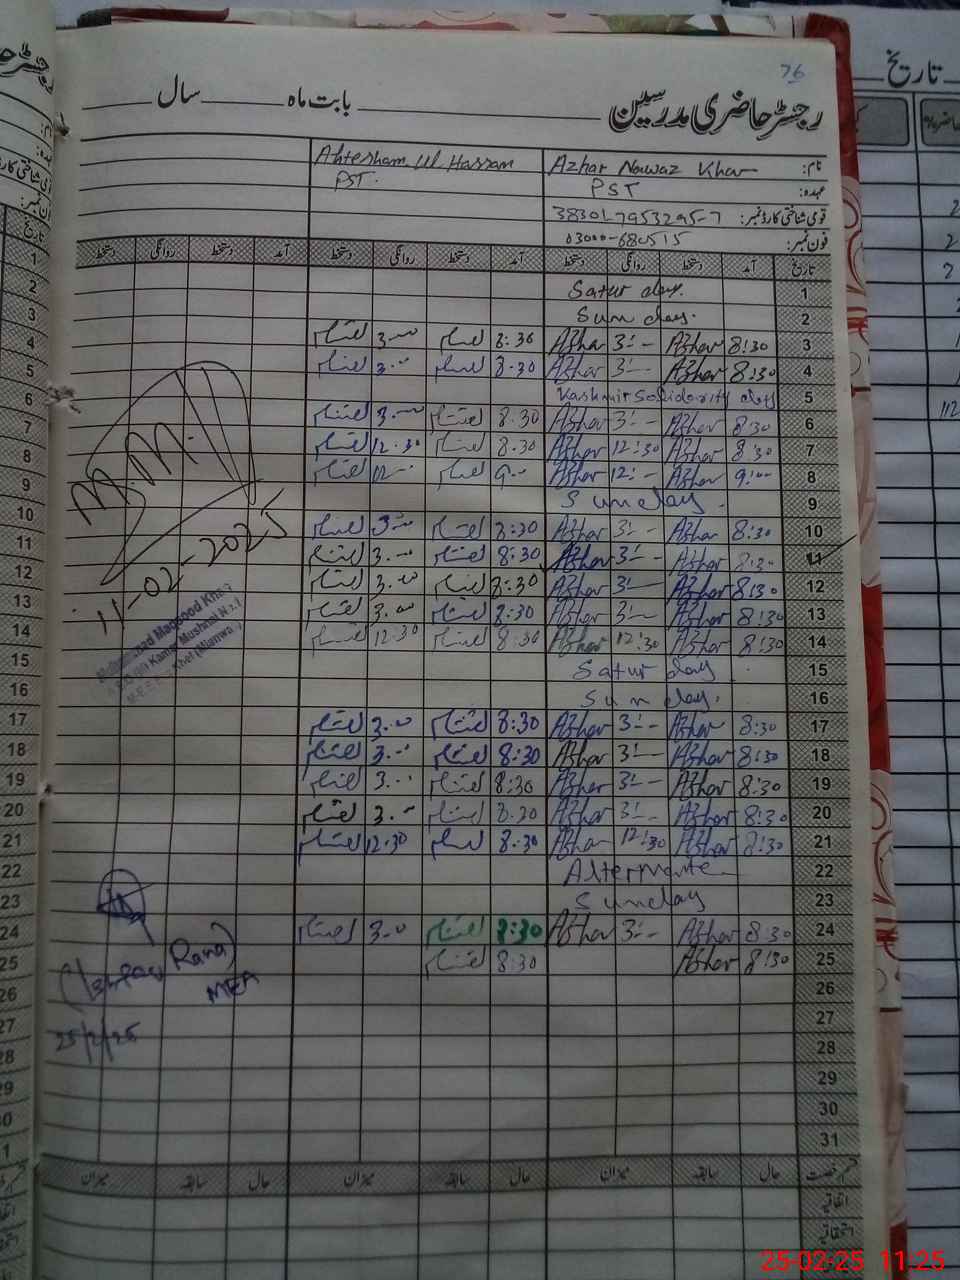 76
رجسٹر حاضری مدرسین بابت ماہ سال
نام: Azhar Nawaz Khan Ahtesham Ul Hassan
عہدہ: PST PST.
قومی شناختی کارڈ نمبر: 38301-7953295-7
فون نمبر: 03000-680515
تاریخ آمد دستخط روانگی دستخط آمد دستخط روانگی دستخط آمد دستخط روانگی دستخط
1 Satur day.
2 Sun day.
3 8:30 Azhar 3:-- Azhar 8:30 احتشام 3.00 احتشام
4 8:30 Azhar 3:-- Azhar 8.30 احتشام 3.00 احتشام
5 Kashmir Solidarity day
6 8:30 Azhar 3:-- Azhar 8.30 احتشام 3.00 احتشام
7 8:30 Azhar 12:30 Azhar 8.30 احتشام 12.30 احتشام
8 9:00 Azhar 12:-- Azhar 9.00 احتشام 12.-- احتشام
9 Sunday.
10 8:30 Azhar 3:-- Azhar 8:30 احتشام 3.00 احتشام
11 8:30 Azhar 3:-- Azhar 8:30 احتشام 3.00 احتشام
12 8:30 Azhar 3:-- Azhar 8:30 احتشام 3.00 احتشام
13 8:30 Azhar 3:-- Azhar 8:30 احتشام 3.00 احتشام
14 8:30 Azhar 12:30 Azhar 8:30 احتشام 12.30 احتشام
15 Satur day.
16 Sun day.
17 8:30 Azhar 3:-- Azhar 8:30 احتشام 3.00 احتشام
18 8:30 Azhar 3:-- Azhar 8:30 احتشام 3.00 احتشام
19 8:30 Azhar 3:-- Azhar 8:30 احتشام 3.00 احتشام
20 8:30 Azhar 3:-- Azhar 8.30 احتشام 3.00 احتشام
21 8:30 Azhar 12:30 Azhar 8.30 احتشام 12.30 احتشام
22 Alternate
23 Sunday
24 8:30 Azhar 3:-- Azhar 8:30 احتشام 3.00 احتشام
25 8:30 Azhar 8:30 احتشام
26
27
28
29
30
31
قسم رخصت حال سابقہ میزان حال سابقہ میزان حال سابقہ میزان
اتفاقیہ
استحقاقیہ
11-02-2025
Muhammad Maqsood Khan
Rana)
MEA
25/2/25
تاریخ
25-02-25 11:25